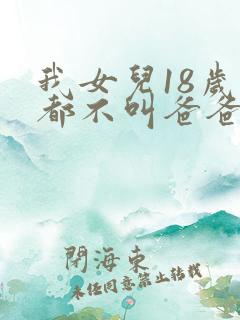 我女兒18歲
都不叫爸爸
閉海東
未经同意禁止转载